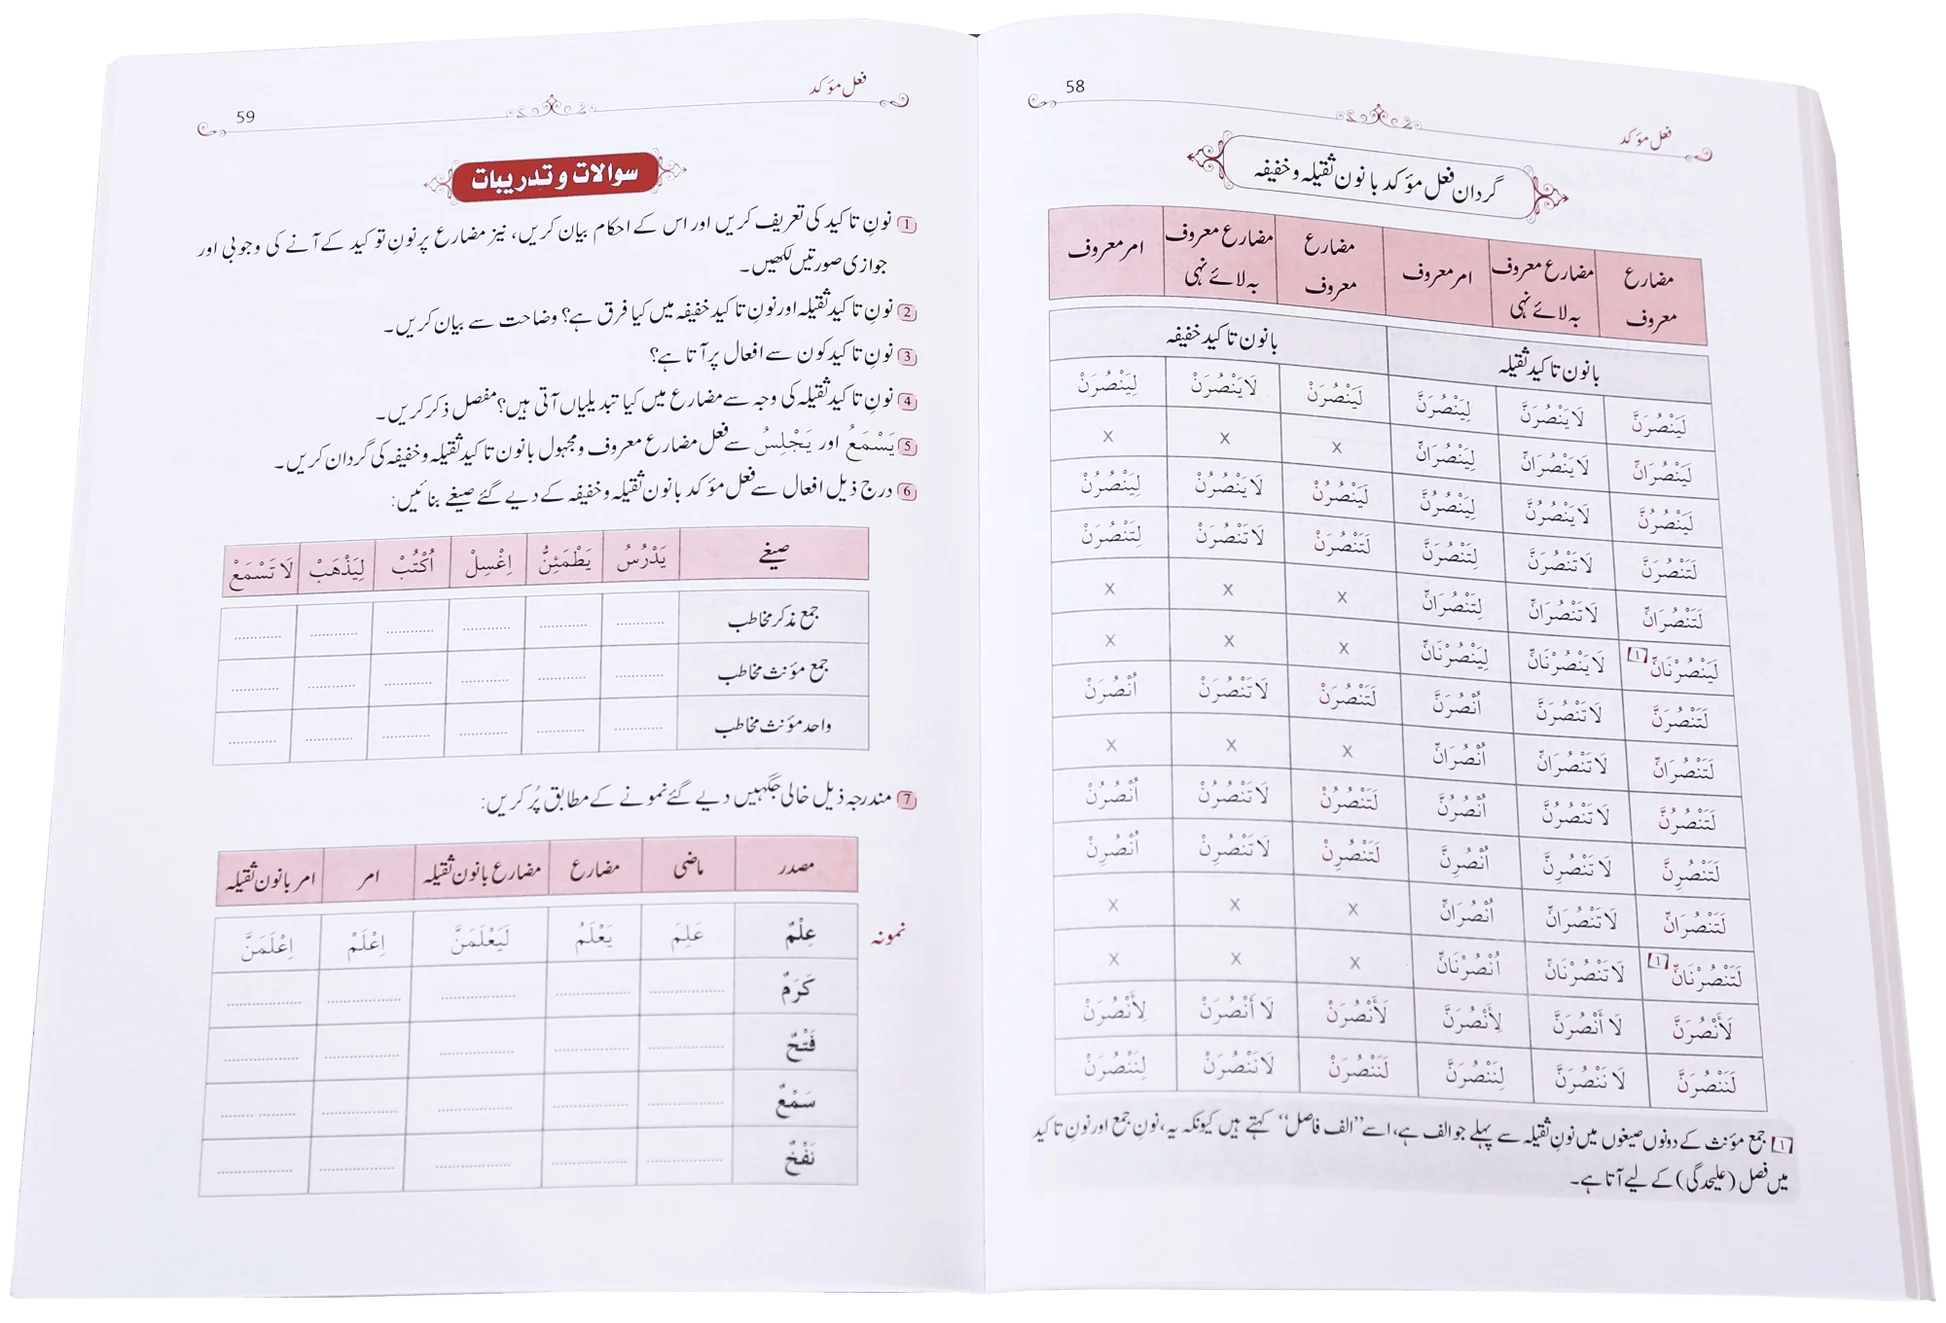 58
فعل مؤکد
گردان فعل مؤکد با نون ثقیلہ و خفیفہ
مضارع معروف	مضارع معروف بہ لائے نہی	امر معروف	مضارع معروف	مضارع معروف بہ لائے نہی	امر معروف
با نون تاکید ثقیلہ	با نون تاکید خفیفہ
لَيَنْصُرَنَّ	لَا يَنْصُرَنَّ	لِيَنْصُرَنَّ	لَيَنْصُرَنْ	لَا يَنْصُرَنْ	لِيَنْصُرَنْ
لَيَنْصُرَانِّ	لَا يَنْصُرَانِّ	لِيَنْصُرَانِّ	x	x	x
لَيَنْصُرُنَّ	لَا يَنْصُرُنَّ	لِيَنْصُرُنَّ	لَيَنْصُرُنْ	لَا يَنْصُرُنْ	لِيَنْصُرُنْ
لَتَنْصُرَنَّ	لَا تَنْصُرَنَّ	لِتَنْصُرَنَّ	لَتَنْصُرَنْ	لَا تَنْصُرَنْ	لِتَنْصُرَنْ
لَتَنْصُرَانِّ	لَا تَنْصُرَانِّ	لِتَنْصُرَانِّ	x	x	x
لَيَنْصُرْنَانِّ ١	لَا يَنْصُرْنَانِّ	لِيَنْصُرْنَانِّ	x	x	x
لَتَنْصُرَنَّ	لَا تَنْصُرَنَّ	اُنْصُرَنَّ	لَتَنْصُرَنْ	لَا تَنْصُرَنْ	اُنْصُرَنْ
لَتَنْصُرَانِّ	لَا تَنْصُرَانِّ	اُنْصُرَانِّ	x	x	x
لَتَنْصُرُنَّ	لَا تَنْصُرُنَّ	اُنْصُرُنَّ	لَتَنْصُرُنْ	لَا تَنْصُرُنْ	اُنْصُرُنْ
لَتَنْصُرِنَّ	لَا تَنْصُرِنَّ	اُنْصُرِنَّ	لَتَنْصُرِنْ	لَا تَنْصُرِنْ	اُنْصُرِنْ
لَتَنْصُرَانِّ	لَا تَنْصُرَانِّ	اُنْصُرَانِّ	x	x	x
لَتَنْصُرْنَانِّ ١	لَا تَنْصُرْنَانِّ	اُنْصُرْنَانِّ	x	x	x
لَأَنْصُرَنَّ	لَا أَنْصُرَنَّ	لِأَنْصُرَنَّ	لَأَنْصُرَنْ	لَا أَنْصُرَنْ	لِأَنْصُرَنْ
لَنَنْصُرَنَّ	لَا نَنْصُرَنَّ	لِنَنْصُرَنَّ	لَنَنْصُرَنْ	لَا نَنْصُرَنْ	لِنَنْصُرَنْ
١ جمع مؤنث کے دونوں صیغوں میں نونِ ثقیلہ سے پہلے جو الف ہے، اسے ’’الف فاصل‘‘ کہتے ہیں کیونکہ یہ، نونِ جمع اور نونِ تاکید
میں فصل (علیحدگی) کے لیے آتا ہے۔
فعل مؤکد
59
سوالات و تدریبات
1 نونِ تاکید کی تعریف کریں اور اس کے احکام بیان کریں، نیز مضارع پر نونِ توکید کے آنے کی وجوبی اور
جوازی صورتیں لکھیں۔
2 نونِ تاکید ثقیلہ اور نونِ تاکید خفیفہ میں کیا فرق ہے؟ وضاحت سے بیان کریں۔
3 نونِ تاکید کون سے افعال پر آتا ہے؟
4 نونِ تاکید ثقیلہ کی وجہ سے مضارع میں کیا تبدیلیاں آتی ہیں؟ مفصل ذکر کریں۔
5 يَسْمَعُ اور يَجْلِسُ سے فعل مضارع معروف و مجہول با نون تاکید ثقیلہ و خفیفہ کی گردان کریں۔
6 درج ذیل افعال سے فعل مؤکد با نون ثقیلہ و خفیفہ کے دیے گئے صیغے بنائیں:
صیغے	يَدْرُسُ	يَطْمَئِنُّ	اِغْسِلْ	اُكْتُبْ	لِيَذْهَبْ	لَا تَسْمَعْ
جمع مذکر مخاطب	...........	...........	...........	...........	...........	...........
جمع مؤنث مخاطب	...........	...........	...........	...........	...........	...........
واحد مؤنث مخاطب	...........	...........	...........	...........	...........	...........
7 مندرجہ ذیل خالی جگہیں دیے گئے نمونے کے مطابق پُر کریں:
مصدر	ماضی	مضارع	مضارع با نون ثقیلہ	امر	امر با نون ثقیلہ
نمونہ	عِلْمٌ	عَلِمَ	يَعْلَمُ	لَيَعْلَمَنَّ	اِعْلَمْ	اِعْلَمَنَّ
كَرَمٌ	...........	...........	...........	...........	...........
فَتْحٌ	...........	...........	...........	...........	...........
سَمْعٌ	...........	...........	...........	...........	...........
نَفْخٌ	...........	...........	...........	...........	...........